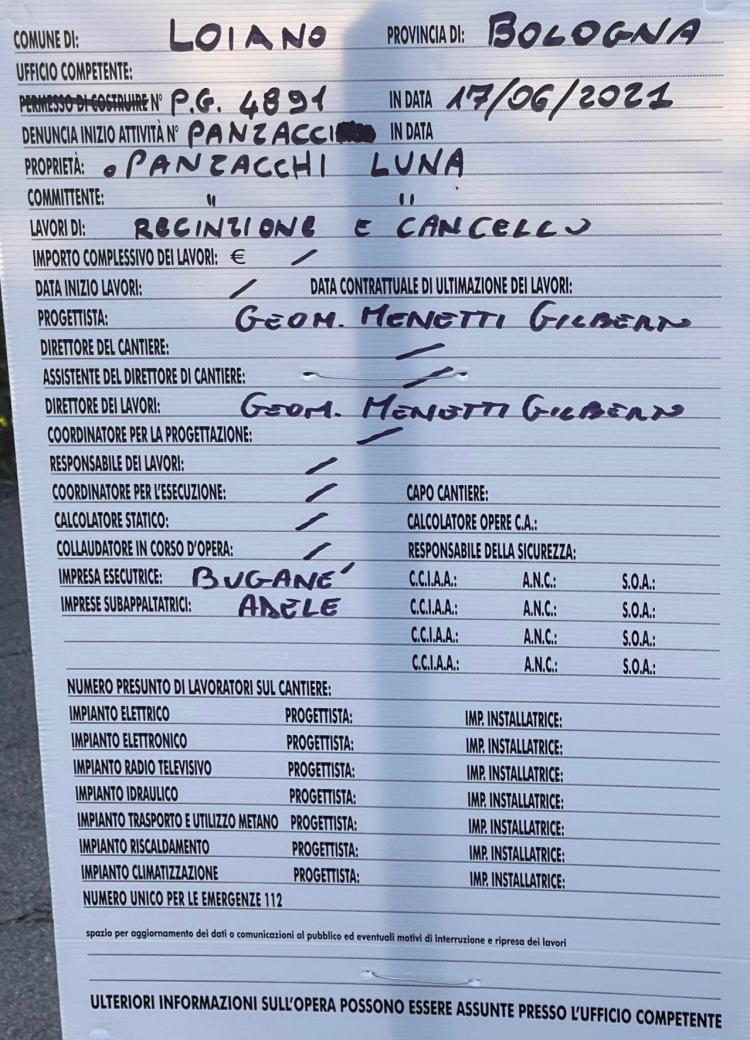 COMUNE DI: LOIANO PROVINCIA DI: BOLOGNA
UFFICIO COMPETENTE:
PERMESSO DI COSTRUIRE N° P.G. 4891 IN DATA 17/06/2021
DENUNCIA INIZIO ATTIVITÀ N° PANZACCI IN DATA
PROPRIETÀ: . PANZACCHI LUNA
COMMITTENTE: " "
LAVORI DI: RECINZIONE E CANCELLO
IMPORTO COMPLESSIVO DEI LAVORI: € /
DATA INIZIO LAVORI: / DATA CONTRATTUALE DI ULTIMAZIONE DEI LAVORI:
PROGETTISTA: GEOM. MENETTI GILBERTO
DIRETTORE DEL CANTIERE: /
ASSISTENTE DEL DIRETTORE DI CANTIERE: /
DIRETTORE DEI LAVORI: GEOM. MENETTI GILBERTO
COORDINATORE PER LA PROGETTAZIONE: /
RESPONSABILE DEI LAVORI: /
COORDINATORE PER L'ESECUZIONE: / CAPO CANTIERE:
CALCOLATORE STATICO: / CALCOLATORE OPERE C.A.:
COLLAUDATORE IN CORSO D'OPERA: / RESPONSABILE DELLA SICUREZZA:
IMPRESA ESECUTRICE: BUGANE' C.C.I.A.A.: A.N.C.: S.O.A.:
IMPRESE SUBAPPALTATRICI: ADELE C.C.I.A.A.: A.N.C.: S.O.A.:
C.C.I.A.A.: A.N.C.: S.O.A.:
C.C.I.A.A.: A.N.C.: S.O.A.:
NUMERO PRESUNTO DI LAVORATORI SUL CANTIERE:
IMPIANTO ELETTRICO PROGETTISTA: IMP. INSTALLATRICE:
IMPIANTO ELETTRONICO PROGETTISTA: IMP. INSTALLATRICE:
IMPIANTO RADIO TELEVISIVO PROGETTISTA: IMP. INSTALLATRICE:
IMPIANTO IDRAULICO PROGETTISTA: IMP. INSTALLATRICE:
IMPIANTO TRASPORTO E UTILIZZO METANO PROGETTISTA: IMP. INSTALLATRICE:
IMPIANTO RISCALDAMENTO PROGETTISTA: IMP. INSTALLATRICE:
IMPIANTO CLIMATIZZAZIONE PROGETTISTA: IMP. INSTALLATRICE:
NUMERO UNICO PER LE EMERGENZE 112
spazio per aggiornamento dei dati o comunicazioni al pubblico ed eventuali motivi di interruzione e ripresa dei lavori
ULTERIORI INFORMAZIONI SULL'OPERA POSSONO ESSERE ASSUNTE PRESSO L'UFFICIO COMPETENTE